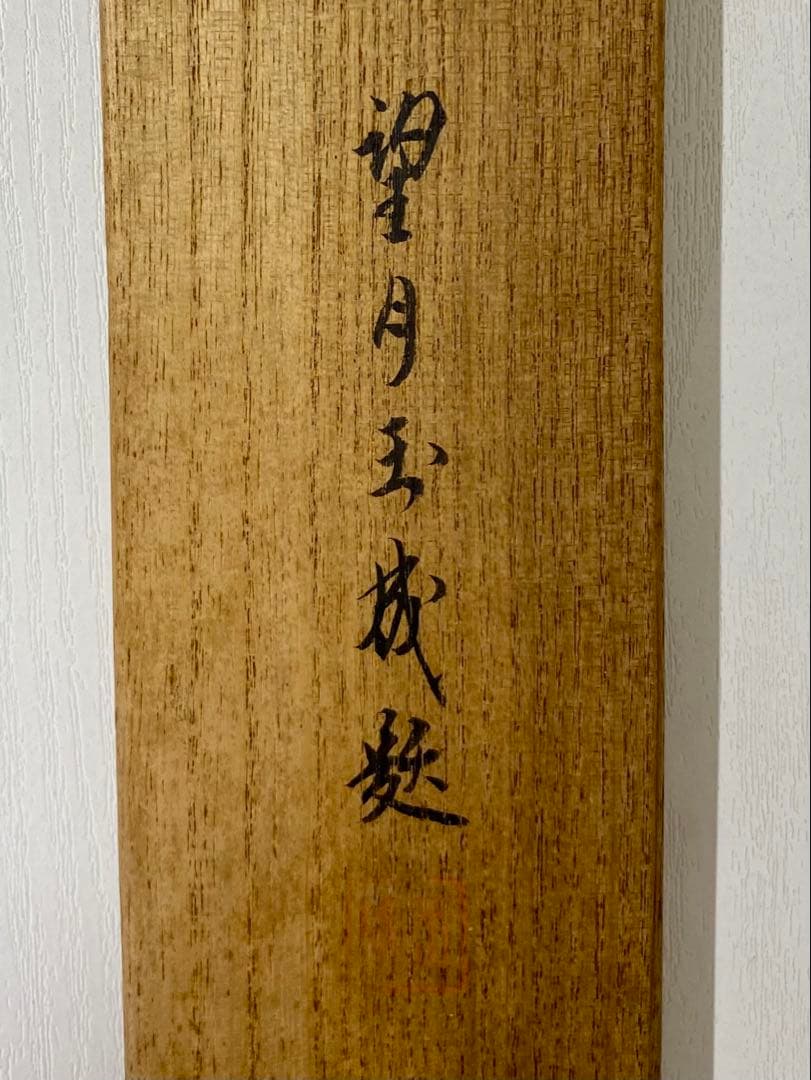 望月玉成題